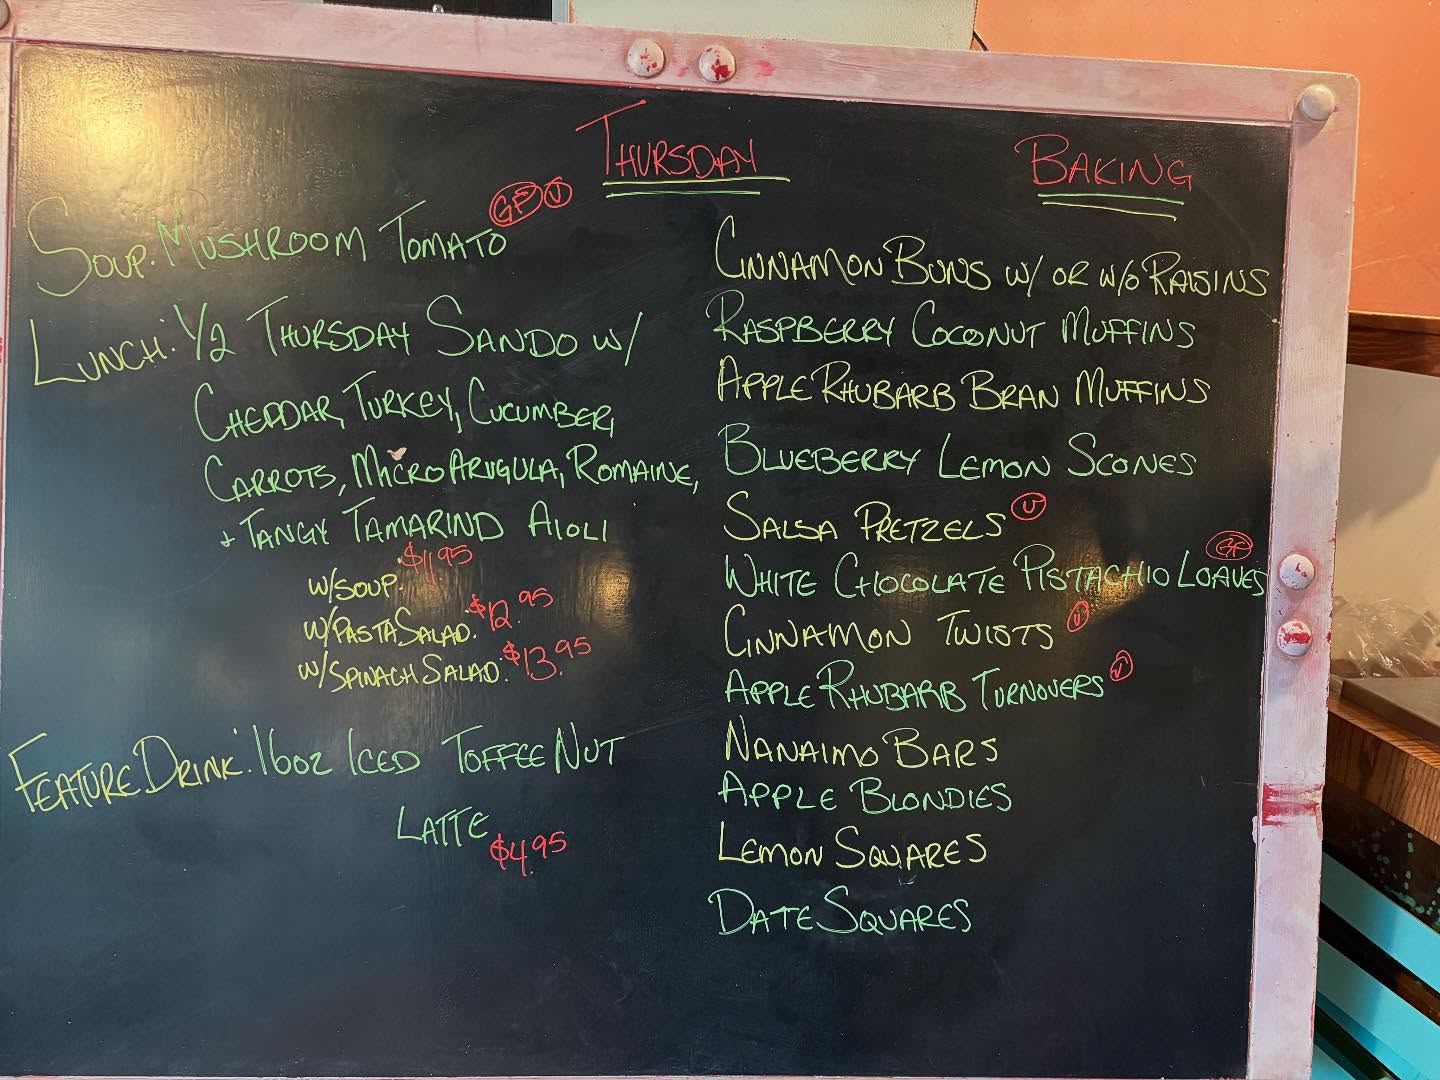 Thursday
Soup: Mushroom Tomato GF V
Lunch: 1/2 Thursday Sando w/
Cheddar, Turkey, Cucumber,
Carrots, Micro Arugula, Romaine,
+ Tangy Tamarind Aioli
w/Soup: $11.95
w/Pasta Salad: $12.95
w/Spinach Salad: $13.95
Feature Drink: 16oz Iced Toffee Nut
Latte $4.95
Baking
Cinnamon Buns w/ or w/o Raisins
Raspberry Coconut Muffins
Apple Rhubarb Bran Muffins
Blueberry Lemon Scones
Salsa Pretzels V
White Chocolate Pistachio Loaves GF
Cinnamon Twists V
Apple Rhubarb Turnovers V
Nanaimo Bars
Apple Blondies
Lemon Squares
Date Squares